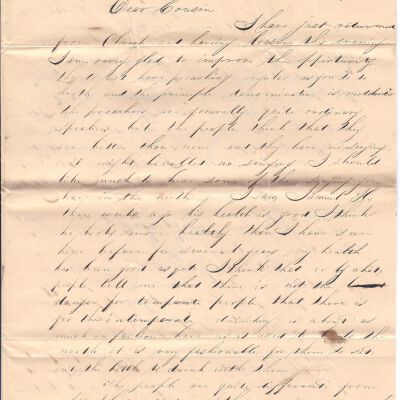 Dear Cousin
I have just returned
from Church and having leisure this evening
I am very glad to improve the opportunity
We do not have preaching regular as you do
north and the principle denomination is methodist
the preachers are generally quite ordinary
speakers but the people think that they
are better than none and they have no singing
or it might be called no singing I should
like much to hear some of the singing you
have in the north I saw Samuel H
three weeks ago his health is good I think
he looks more healthy than I have seen
him before for several years my health
has been good as yet I think that
people tell me that there is not the
danger for temperate people that there is
for the intemperate drinking is about as
much in fashion here as it used to be to the
north it is very fashionable for them to set
out the bottle to drink with them
The people are quite different from